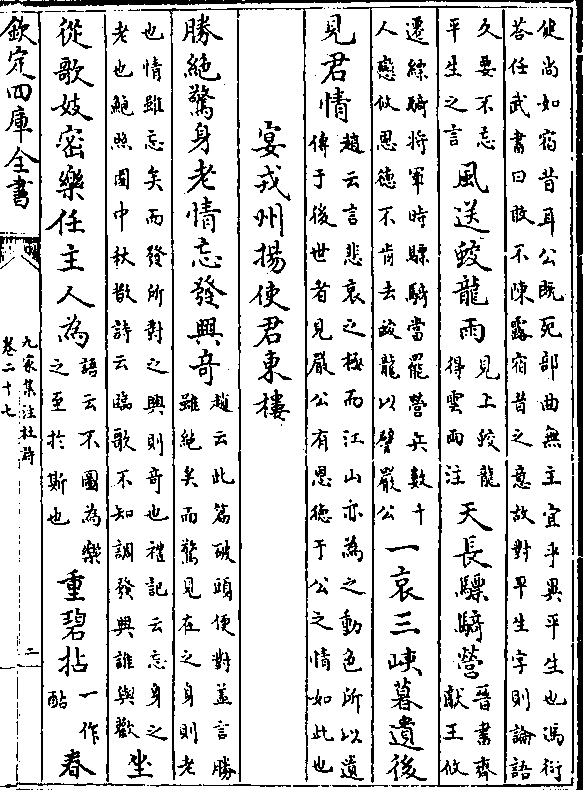 健尚如宿昔耳公既死部曲無主宜乎異平生也馮衍
荅任武書曰敢不陳露宿昔之意故對平生字則論語
久要不忘
平生之言
風送蛟龍雨
見上蛟龍
得雲雨注
天長驃騎營
晉書齊
獻王攸
遷縹騎將軍時驃騎當罷營兵數千
人戀攸恩德不肯去蛟龍以譬嚴公
一哀三峽暮遺後
見君情
趙云言悲哀之極而江山亦為之動色所以遺
傳于後世者見嚴公有恩德于公之情如此也
宴戎州揚使君東樓
勝絶驚身老情忘發興奇
趙云此篇破頭便對蓋言勝
雖絶矣而驚見在之身則老
也情雖忘矣而發所對之興則奇也禮記云忘身之
老也鮑照園中秋散詩云臨歌不知調發興誰與歡
坐
從歌妓密樂任主人為
語云不圖為樂
之至於斯也
重碧拈
一作
酤
春
欽定四庫全書
九家集注杜詩
卷二十七
二